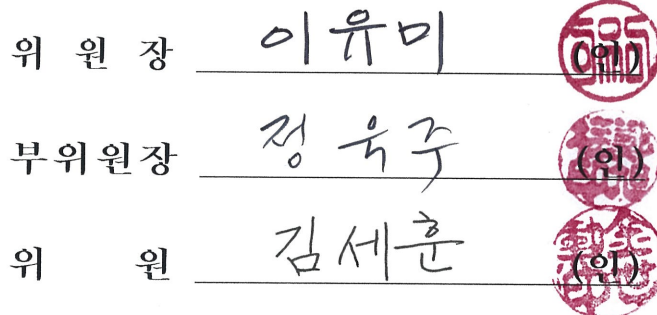 위 원 장 이유미 (인)
부위원장 정욱주 (인)
위 원 김세훈 (인)